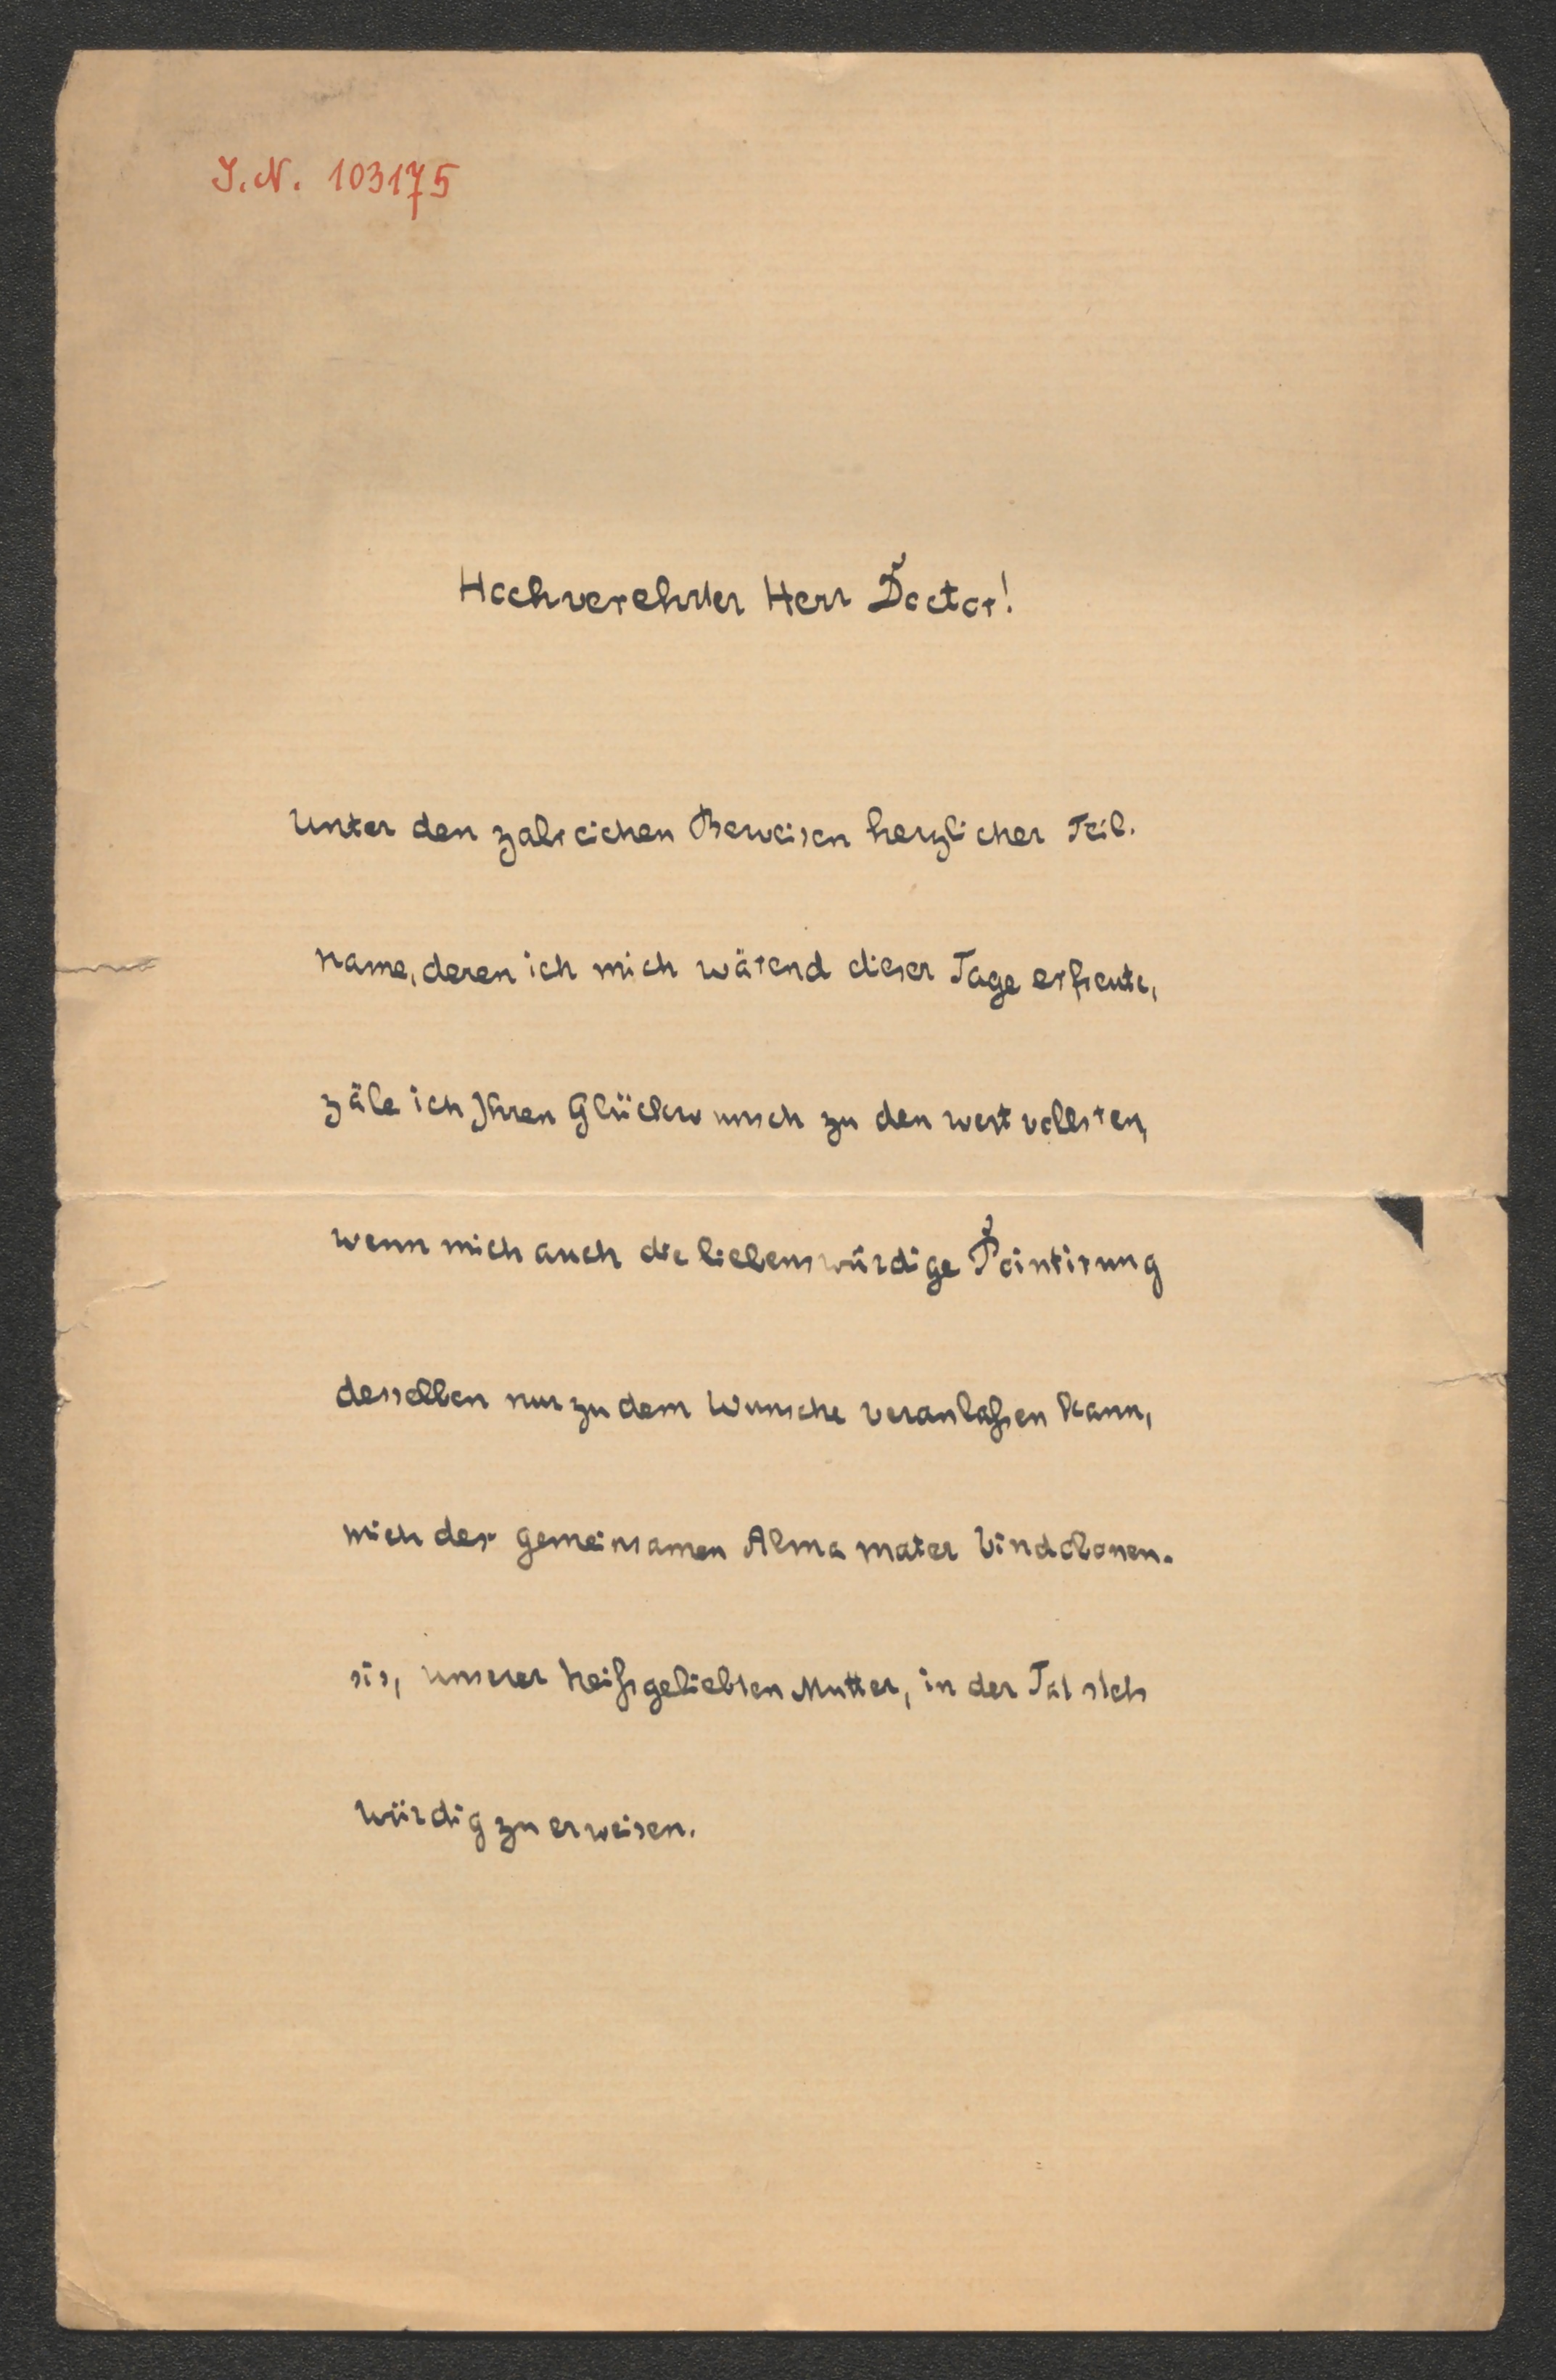 J. N. 103175
Hochverehrter Herr Doctor!
Unter den zalreichen Beweisen herzlicher Teil-
name, deren ich mich wärend dieser Tage erfreute,
zäle ich Ihren Glückwunsch zu den wertvollsten,
wenn mich auch die liebenswürdige Pointirung
desselben nur zu dem Wunsche veranlaßen kann,
mich der gemeinsamen Alma mater Vindobonen-
sis, unserer heißgeliebten Mutter, in der Tat stets
würdig zu erweisen.